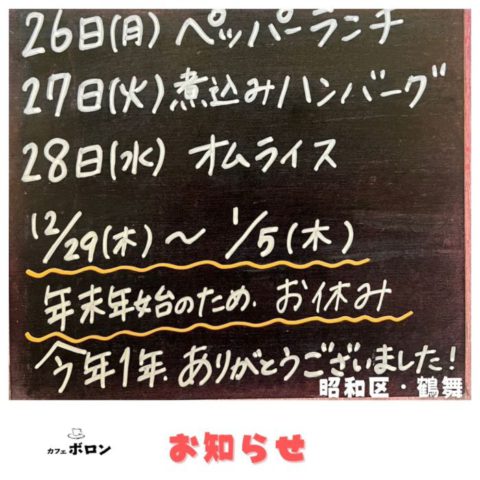 26日(月) ペッパーランチ
27日(火) 煮込みハンバーグ
28日(水) オムライス
12/29(木)～1/5(木)
年末年始のため、お休み
今年1年、ありがとうございました!
昭和区・鶴舞
カフェ ボロン
お知らせ